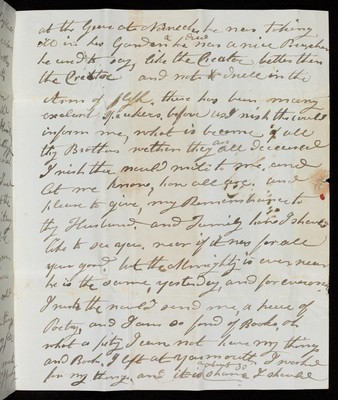 at the Grove at he was taking
in his Garden he was a nice Preacher
he used to say, like the Creator better than
the Creator and not to dwell in the
Arms of flesh. there has been many
excelent Speakers, before us I wish thou would
inform me, what is become of all
thy Brothers wether they are all deceased
I wish thee would write to me, and
let me know, how all are, and
please to give, my Remembrance to
thy Husband, and Family how I should
like to see you. near if it was for all
your good but the Almighty is ever near
he is the same yesterday, and for ever more
I wish thee would send me, a piece of
Poetry, and I am so fond of Books, oh
what a pity I can not have my things
and Books, I left at Yarmouth I worked
for my things, and it is a shame I should